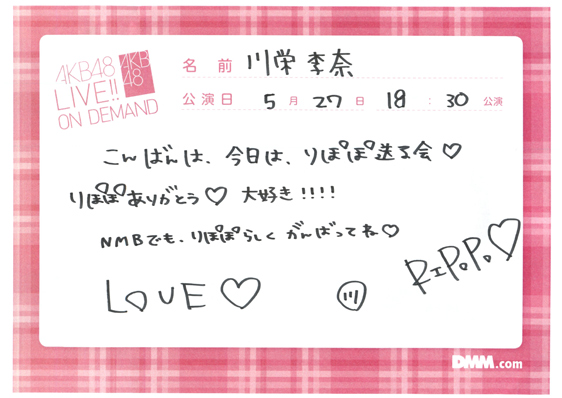 AKB48
LIVE!!
ON DEMAND
AKB
48
名前 川栄李奈
公演日 5月27日 18:30公演
こんばんは、今日は、りぽぽ送る会♡
りぽぽありがとう♡ 大好き!!!!
NMBでも、りぽぽらしくがんばってね♡
LOVE♡
川
RIPOPO♡
DMM.com